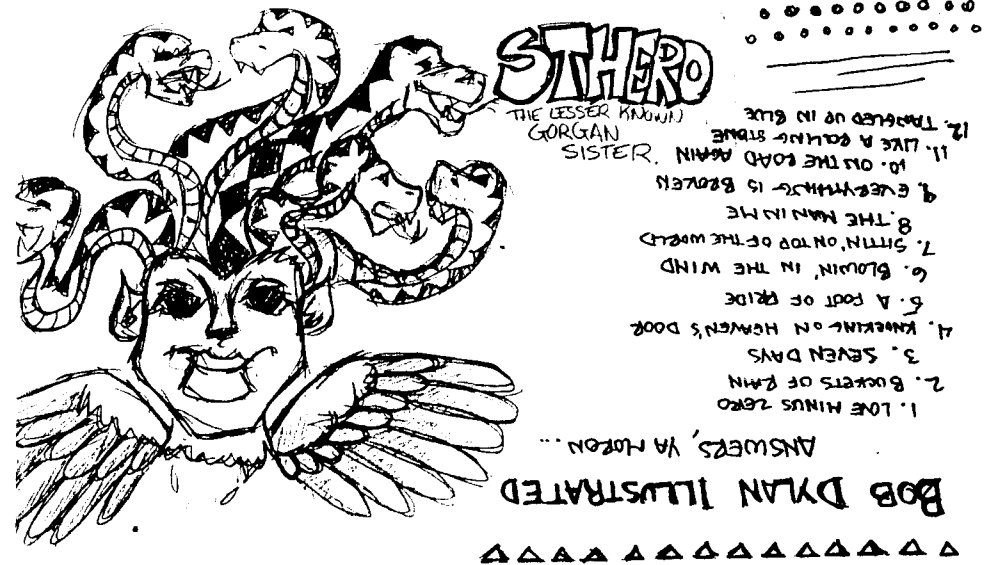 STHERO
THE LESSER KNOWN
GORGAN
SISTER.
BOB DYLAN ILLUSTRATED
ANSWERS, YA MORON...
1. LOVE MINUS ZERO
2. BUCKETS OF RAIN
3. SEVEN DAYS
4. KNOCKING ON HEAVEN'S DOOR
5. A FOOT OF PRIDE
6. BLOWIN' IN THE WIND
7. SITTIN' ON TOP OF THE WORLD
8. THE MAN IN ME
9. EVERYTHING IS BROKEN
10. ON THE ROAD AGAIN
11. LIKE A ROLLING STONE
12. TANGLED UP IN BLUE